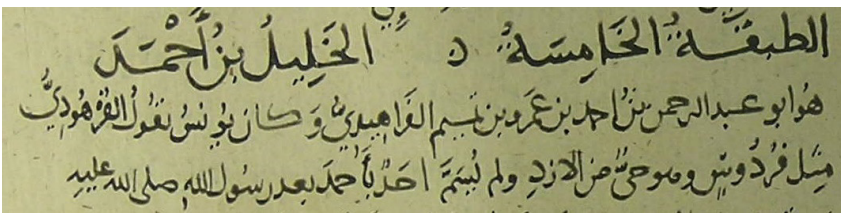 الطبقةُ الخَامِسَةُ ن الخَلِيلُ بنُ أَحْمَدَ
هُوَ ابو عبد الرحمن بنُ احمد بن عَمرو بن تميم الفَراهِيديُّ وَكان يُونسُ يَقُولُ الفُرْهُودِيُّ
مِثل فُرْدُوسٍ وهوحىٌّ من الازدِ ولم يُسَمَّ احَدٌ بأَحمدَ بعد رسُول اللهِ صلى الله عليهِ